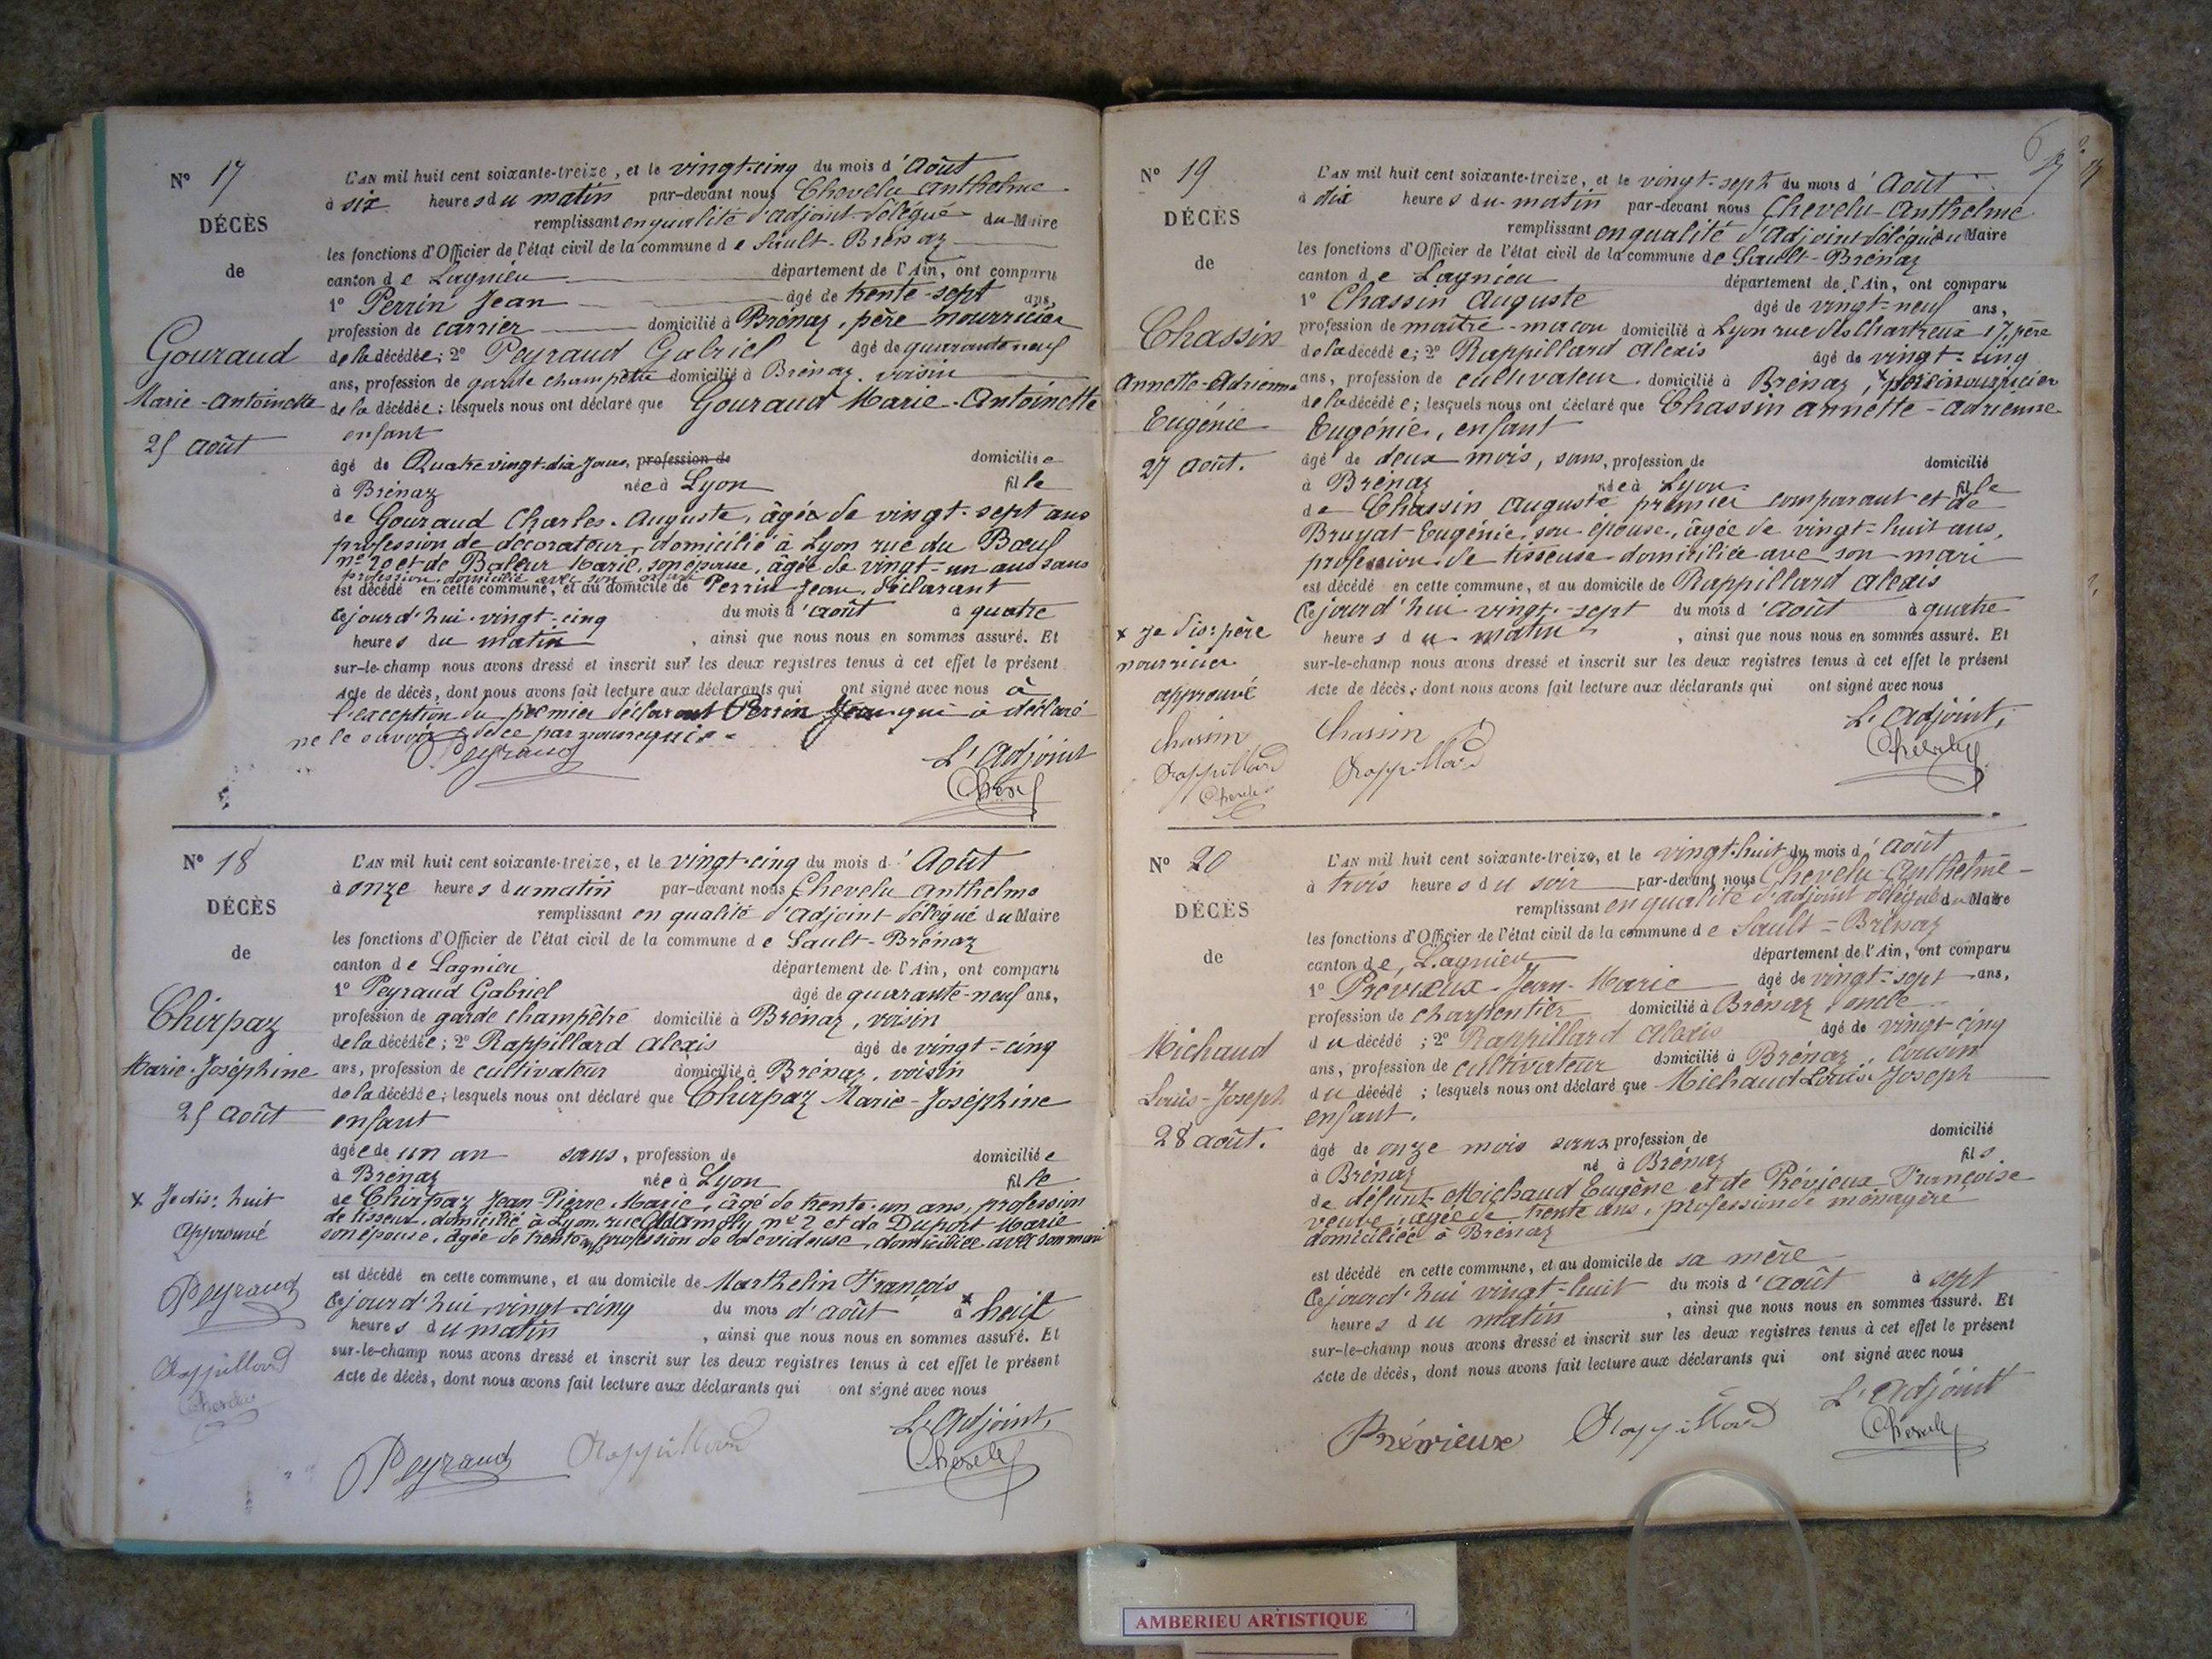 N° 17
DÉCÈS
de
Gouraud
Marie-Antoinette
25 août
L'AN mil huit cent soixante-treize, et le vingt-cinq du mois d'Août
à six heures du matin par-devant nous Chevelu Anthelme
remplissant en qualité d'adjoint délégué du Maire
les fonctions d'Officier de l'état civil de la commune de Sault-Brénaz
canton de Lagnieu département de l'Ain, ont comparu
1° Perrin Jean âgé de trente-sept ans,
profession de carrier domicilié à Brénaz, père nourricier
de la décédée; 2° Peyraud Gabriel âgé de quarante neuf
ans, profession de garde champêtre domicilié à Brénaz, voisin
de la décédée; lesquels nous ont déclaré que Gouraud Marie-Antoinette
enfant
âgé de Quatre vingt-dix jours, profession de domiciliée
à Brénaz née à Lyon fille
de Gouraud Charles-Auguste, âgée de vingt-sept ans
profession de décorateur, domicilié à Lyon rue du Bœuf
n° 20 et de Marie, son épouse, âgée de vingt-un ans sans
profession domicilié avec son
est décédé en cette commune, et au domicile de Perrin Jean, déclarant
cejourd'hui vingt-cinq du mois d'août à quatre
heures du matin, ainsi que nous nous en sommes assuré. Et
sur-le-champ nous avons dressé et inscrit sur les deux registres tenus à cet effet le présent
Acte de décès, dont nous avons fait lecture aux déclarants qui ont signé avec nous à
l'exception du premier déclarant Perrin Jean qui a déclaré
ne le savoir de ce par nous requis
Peyraud
L'Adjoint
N° 18
DÉCÈS
de
Chirpaz
Marie-Joséphine
25 août
x Je dis: huit
approuvé
Peyraud
Rappillard
Chevelu
L'AN mil huit cent soixante-treize, et le vingt-cinq du mois d'Août
à onze heures du matin par-devant nous Chevelu Anthelme
remplissant en qualité d'Adjoint délégué du Maire
les fonctions d'Officier de l'état civil de la commune de Sault-Brénaz
canton de Lagnieu département de l'Ain, ont comparu
1° Peyraud Gabriel âgé de quarante-neuf ans,
profession de garde champêtre domicilié à Brénaz, voisin
de la décédée; 2° Rappillard Alexis âgé de vingt-cinq
ans, profession de cultivateur domicilié à Brénaz, voisin
de la décédée; lesquels nous ont déclaré que Chirpaz Marie-Joséphine
enfant
âgée de un an sans, profession de domiciliée
à Brénaz née à Lyon fille
de Chirpaz Jean-Pierre-Marie, âgé de trente-un ans, profession
de tisseur, domicilié à Lyon, rue n° 2 et de Dupont Marie
son épouse, âgée de trente ans, profession de dévideuse, domiciliée avec son mari
est décédé en cette commune, et au domicile de Marthelin François
cejourd'hui vingt-cinq du mois d'août à x huit
heures du matin, ainsi que nous nous en sommes assuré. Et
sur-le-champ nous avons dressé et inscrit sur les deux registres tenus à cet effet le présent
Acte de décès, dont nous avons fait lecture aux déclarants qui ont signé avec nous
Peyraud Rappillard
L'Adjoint,
Chevelu
N° 19
DÉCÈS
de
Chassin
Annette-Adrienne
Eugénie
27 août.
x Je dis: père
nourricier
approuvé
Chassin
Rappillard
Chevelu
L'AN mil huit cent soixante-treize, et le vingt-sept du mois d'Août
à dix heures du matin par-devant nous Chevelu Anthelme
remplissant en qualité d'Adjoint délégué du Maire
les fonctions d'Officier de l'état civil de la commune de Sault-Brénaz
canton de Lagnieu département de l'Ain, ont comparu
1° Chassin Auguste âgé de vingt-neuf ans,
profession de maître-maçon domicilié à Lyon rue des Chartreux 17, père
de la décédée; 2° Rappillard Alexis âgé de vingt-cinq
ans, profession de cultivateur domicilié à Brénaz, x père nourricier
de la décédée; lesquels nous ont déclaré que Chassin Annette-Adrienne
Eugénie, enfant
âgé de deux mois, sans, profession de domicilié
à Brénaz née à Lyon fille
de Chassin Auguste premier comparant et de
Bruyat Eugénie, son épouse, âgée de vingt-huit ans,
profession de tisseuse domiciliée avec son mari
est décédé en cette commune, et au domicile de Rappillard Alexis
cejourd'hui vingt-sept du mois d'août à quatre
heures du matin, ainsi que nous nous en sommes assuré. Et
sur-le-champ nous avons dressé et inscrit sur les deux registres tenus à cet effet le présent
Acte de décès, dont nous avons fait lecture aux déclarants qui ont signé avec nous
L'Adjoint,
Chassin
Rappillard
Chevelu
N° 20
DÉCÈS
de
Michaud
Louis-Joseph
28 août.
L'AN mil huit cent soixante-treize, et le vingt-huit du mois d'août
à trois heures du soir par-devant nous Chevelu Anthelme
remplissant en qualité d'adjoint délégué du Maire
les fonctions d'Officier de l'état civil de la commune de Sault-Brénaz
canton de Lagnieu département de l'Ain, ont comparu
1° Prévieux Jean-Marie âgé de vingt-sept ans,
profession de charpentier domicilié à Brénaz, oncle
du décédé; 2° Rappillard Alexis âgé de vingt-cinq
ans, profession de cultivateur domicilié à Brénaz, cousin
du décédé; lesquels nous ont déclaré que Michaud Louis-Joseph
enfant.
âgé de onze mois sans profession de domicilié
à Brénaz né à Brénaz fils
de défunt Michaud Eugène et de Prévieux Françoise
veuve, âgée de trente ans, profession de ménagère
domiciliée à Brénaz
est décédé en cette commune, et au domicile de sa mère
cejourd'hui vingt-huit du mois d'août à sept
heures du matin, ainsi que nous nous en sommes assuré. Et
sur-le-champ nous avons dressé et inscrit sur les deux registres tenus à cet effet le présent
Acte de décès, dont nous avons fait lecture aux déclarants qui ont signé avec nous
L'Adjoint
Prévieux Rappillard Chevelu
AMBERIEU ARTISTIQUE